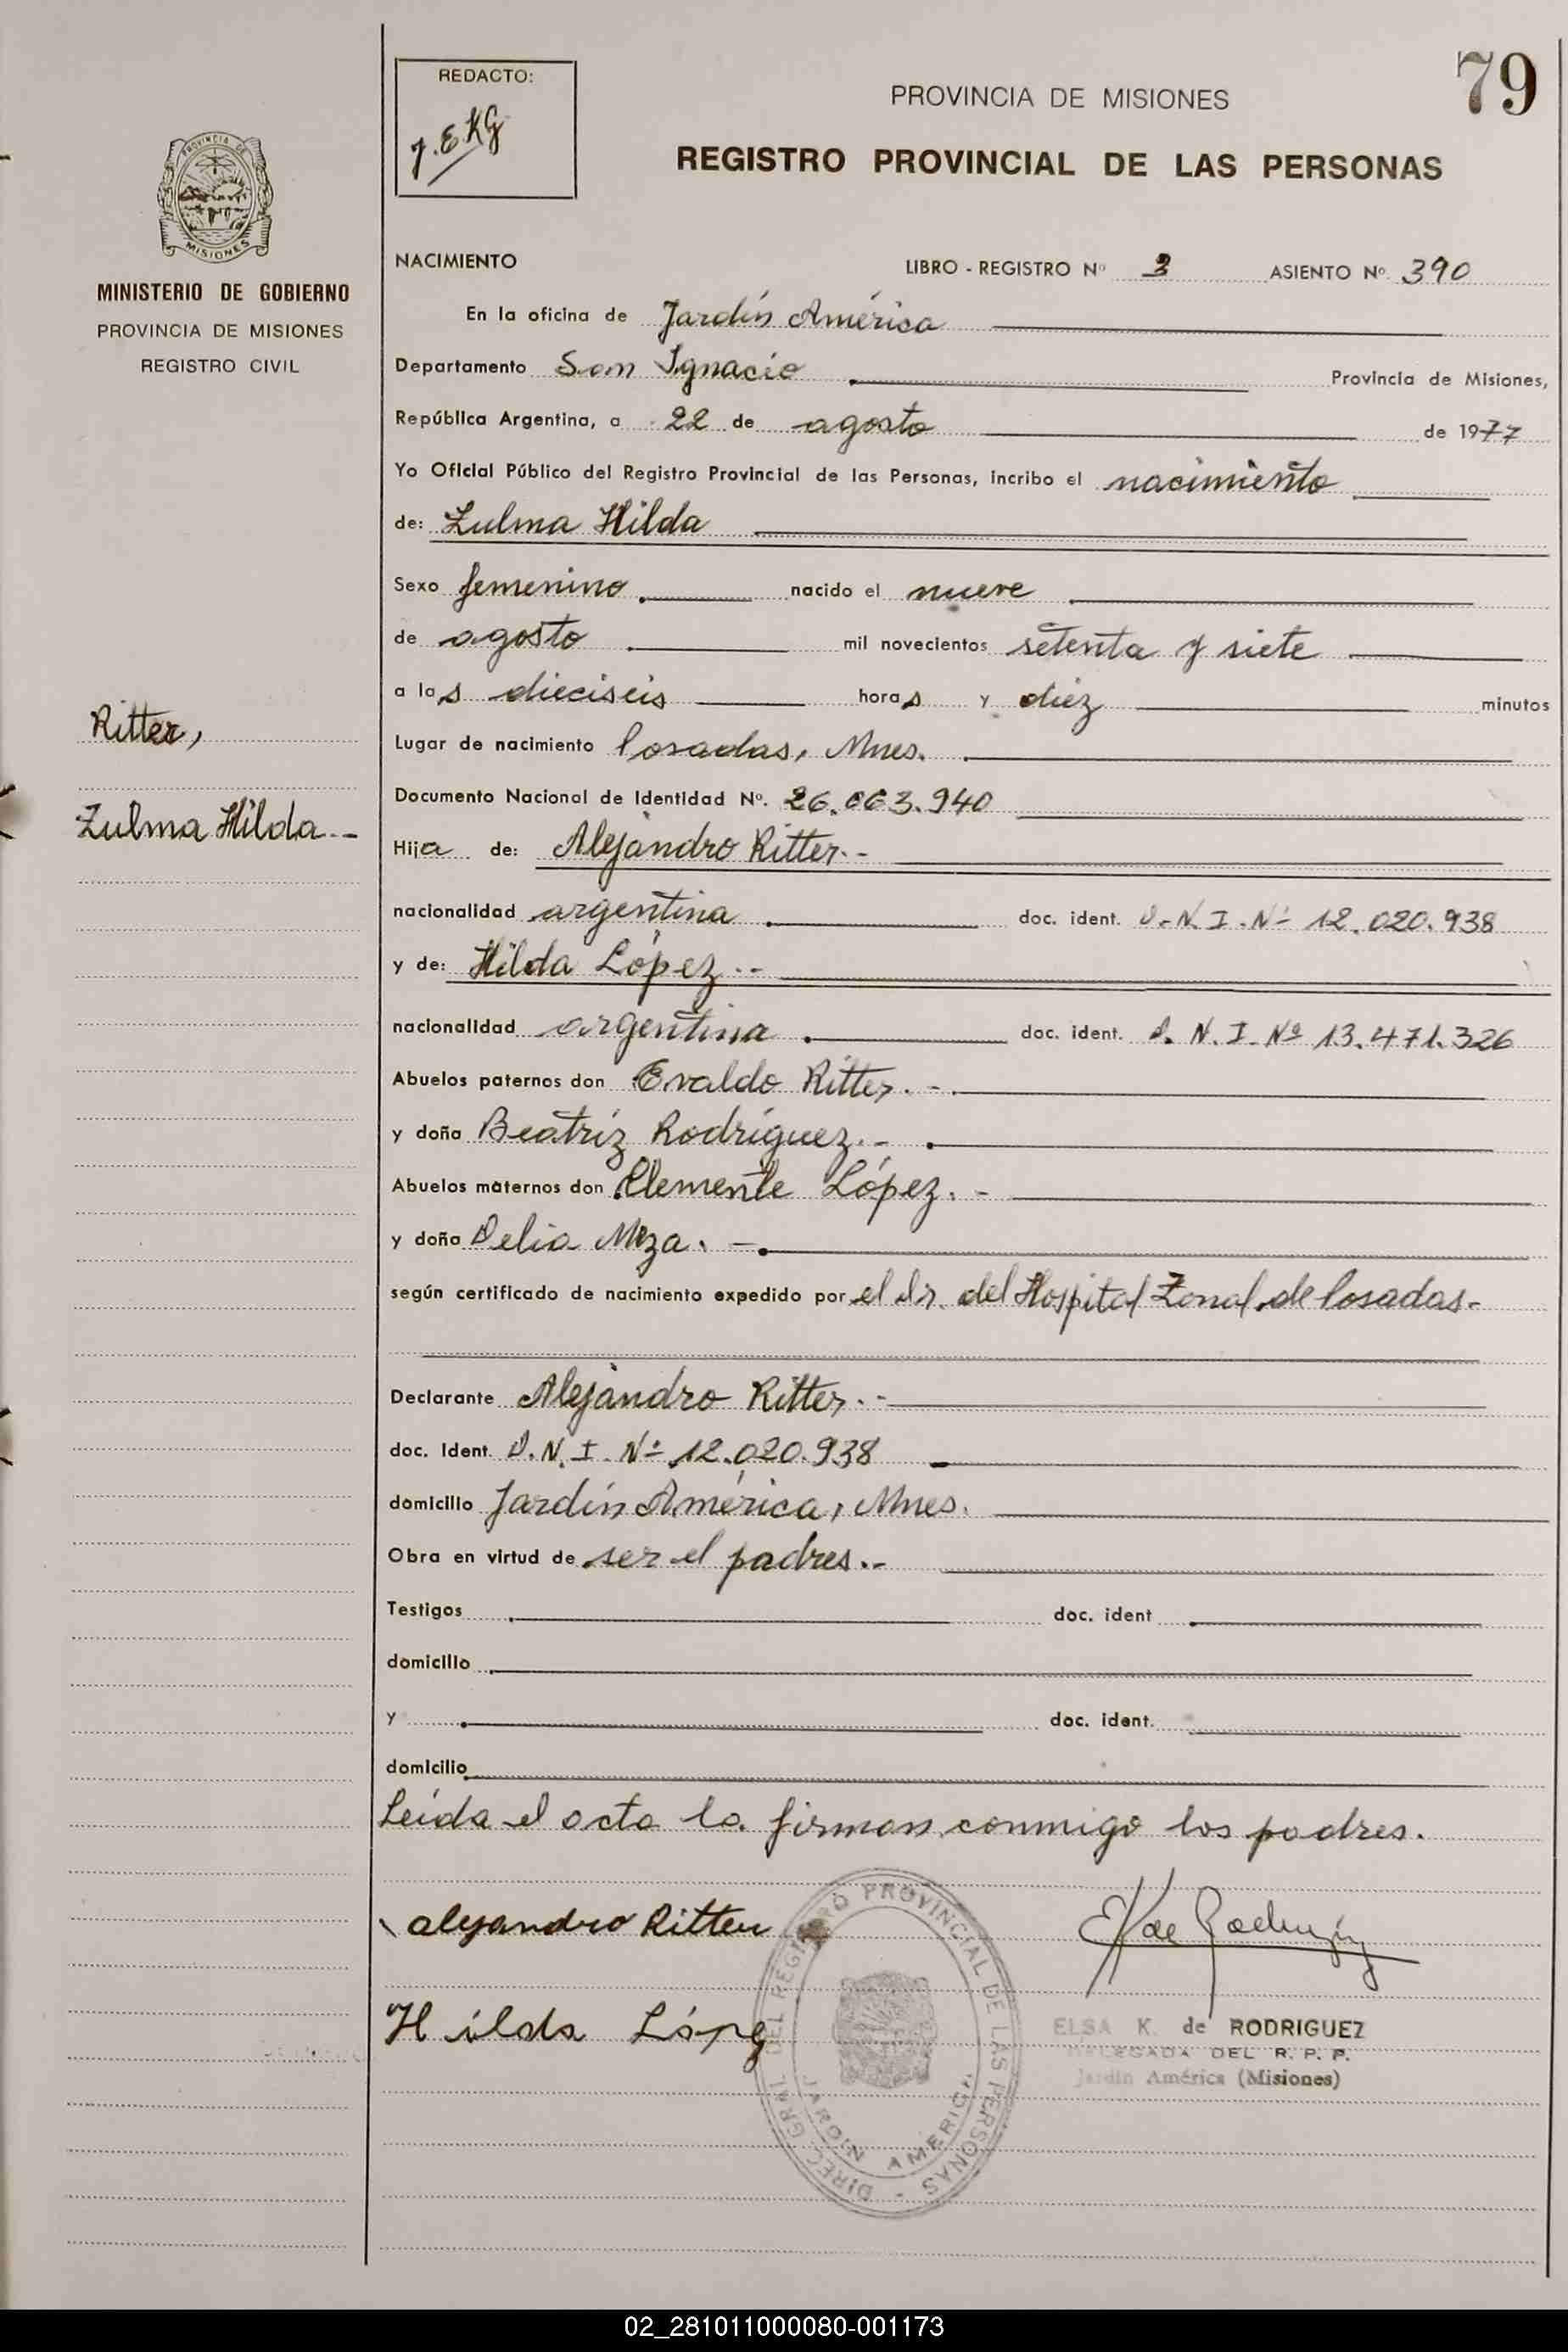 79
REDACTO:
J.E.KG
PROVINCIA DE MISIONES
REGISTRO PROVINCIAL DE LAS PERSONAS
PROVINCIA DE
MISIONES
MINISTERIO DE GOBIERNO
PROVINCIA DE MISIONES
REGISTRO CIVIL
Ritter,
Zulma Hilda.-
NACIMIENTO LIBRO - REGISTRO Nº 3 ASIENTO Nº 390
En la oficina de Jardín América
Departamento San Ignacio Provincia de Misiones,
República Argentina, a 22 de agosto de 1977
Yo Oficial Público del Registro Provincial de las Personas, incribo el nacimiento
de: Zulma Hilda
Sexo femenino. nacido el nueve
de agosto mil novecientos setenta y siete
a las dieciseis horas y diéz minutos
Lugar de nacimiento Posadas, Mnes.
Documento Nacional de Identidad Nº. 26.063.940
Hija de: Alejandro Ritter.-
nacionalidad argentina doc. ident. D.N.I.Nº 12.020.938
y de: Hilda López.-
nacionalidad argentina doc. ident. D.N.I.Nº 13.471.326
Abuelos paternos don Evaldo Ritter.-
y doña Beatríz Rodríguez.-
Abuelos maternos don Clemente López.-
y doña Delia Meza.-
según certificado de nacimiento expedido por el Dr. del Hospital Zonal de Posadas.-
Declarante Alejandro Ritter.-
doc. Ident. D.N.I. Nº 12.020.938
domicilio Jardín América, Mnes.
Obra en virtud de ser el padres.-
Testigos doc. ident
domicilio
y doc. ident.
domicilio
Leída el acta la firman conmigo los padres.
alejandro Ritter
Hilda López
DIREC. GRAL. DEL REGISTRO PROVINCIAL DE LAS PERSONAS -
JARDIN AMERICA
ELSA K. de RODRIGUEZ
DELEGADA DEL R. P. P.
Jardín América (Misiones)
02_281011000080-001173